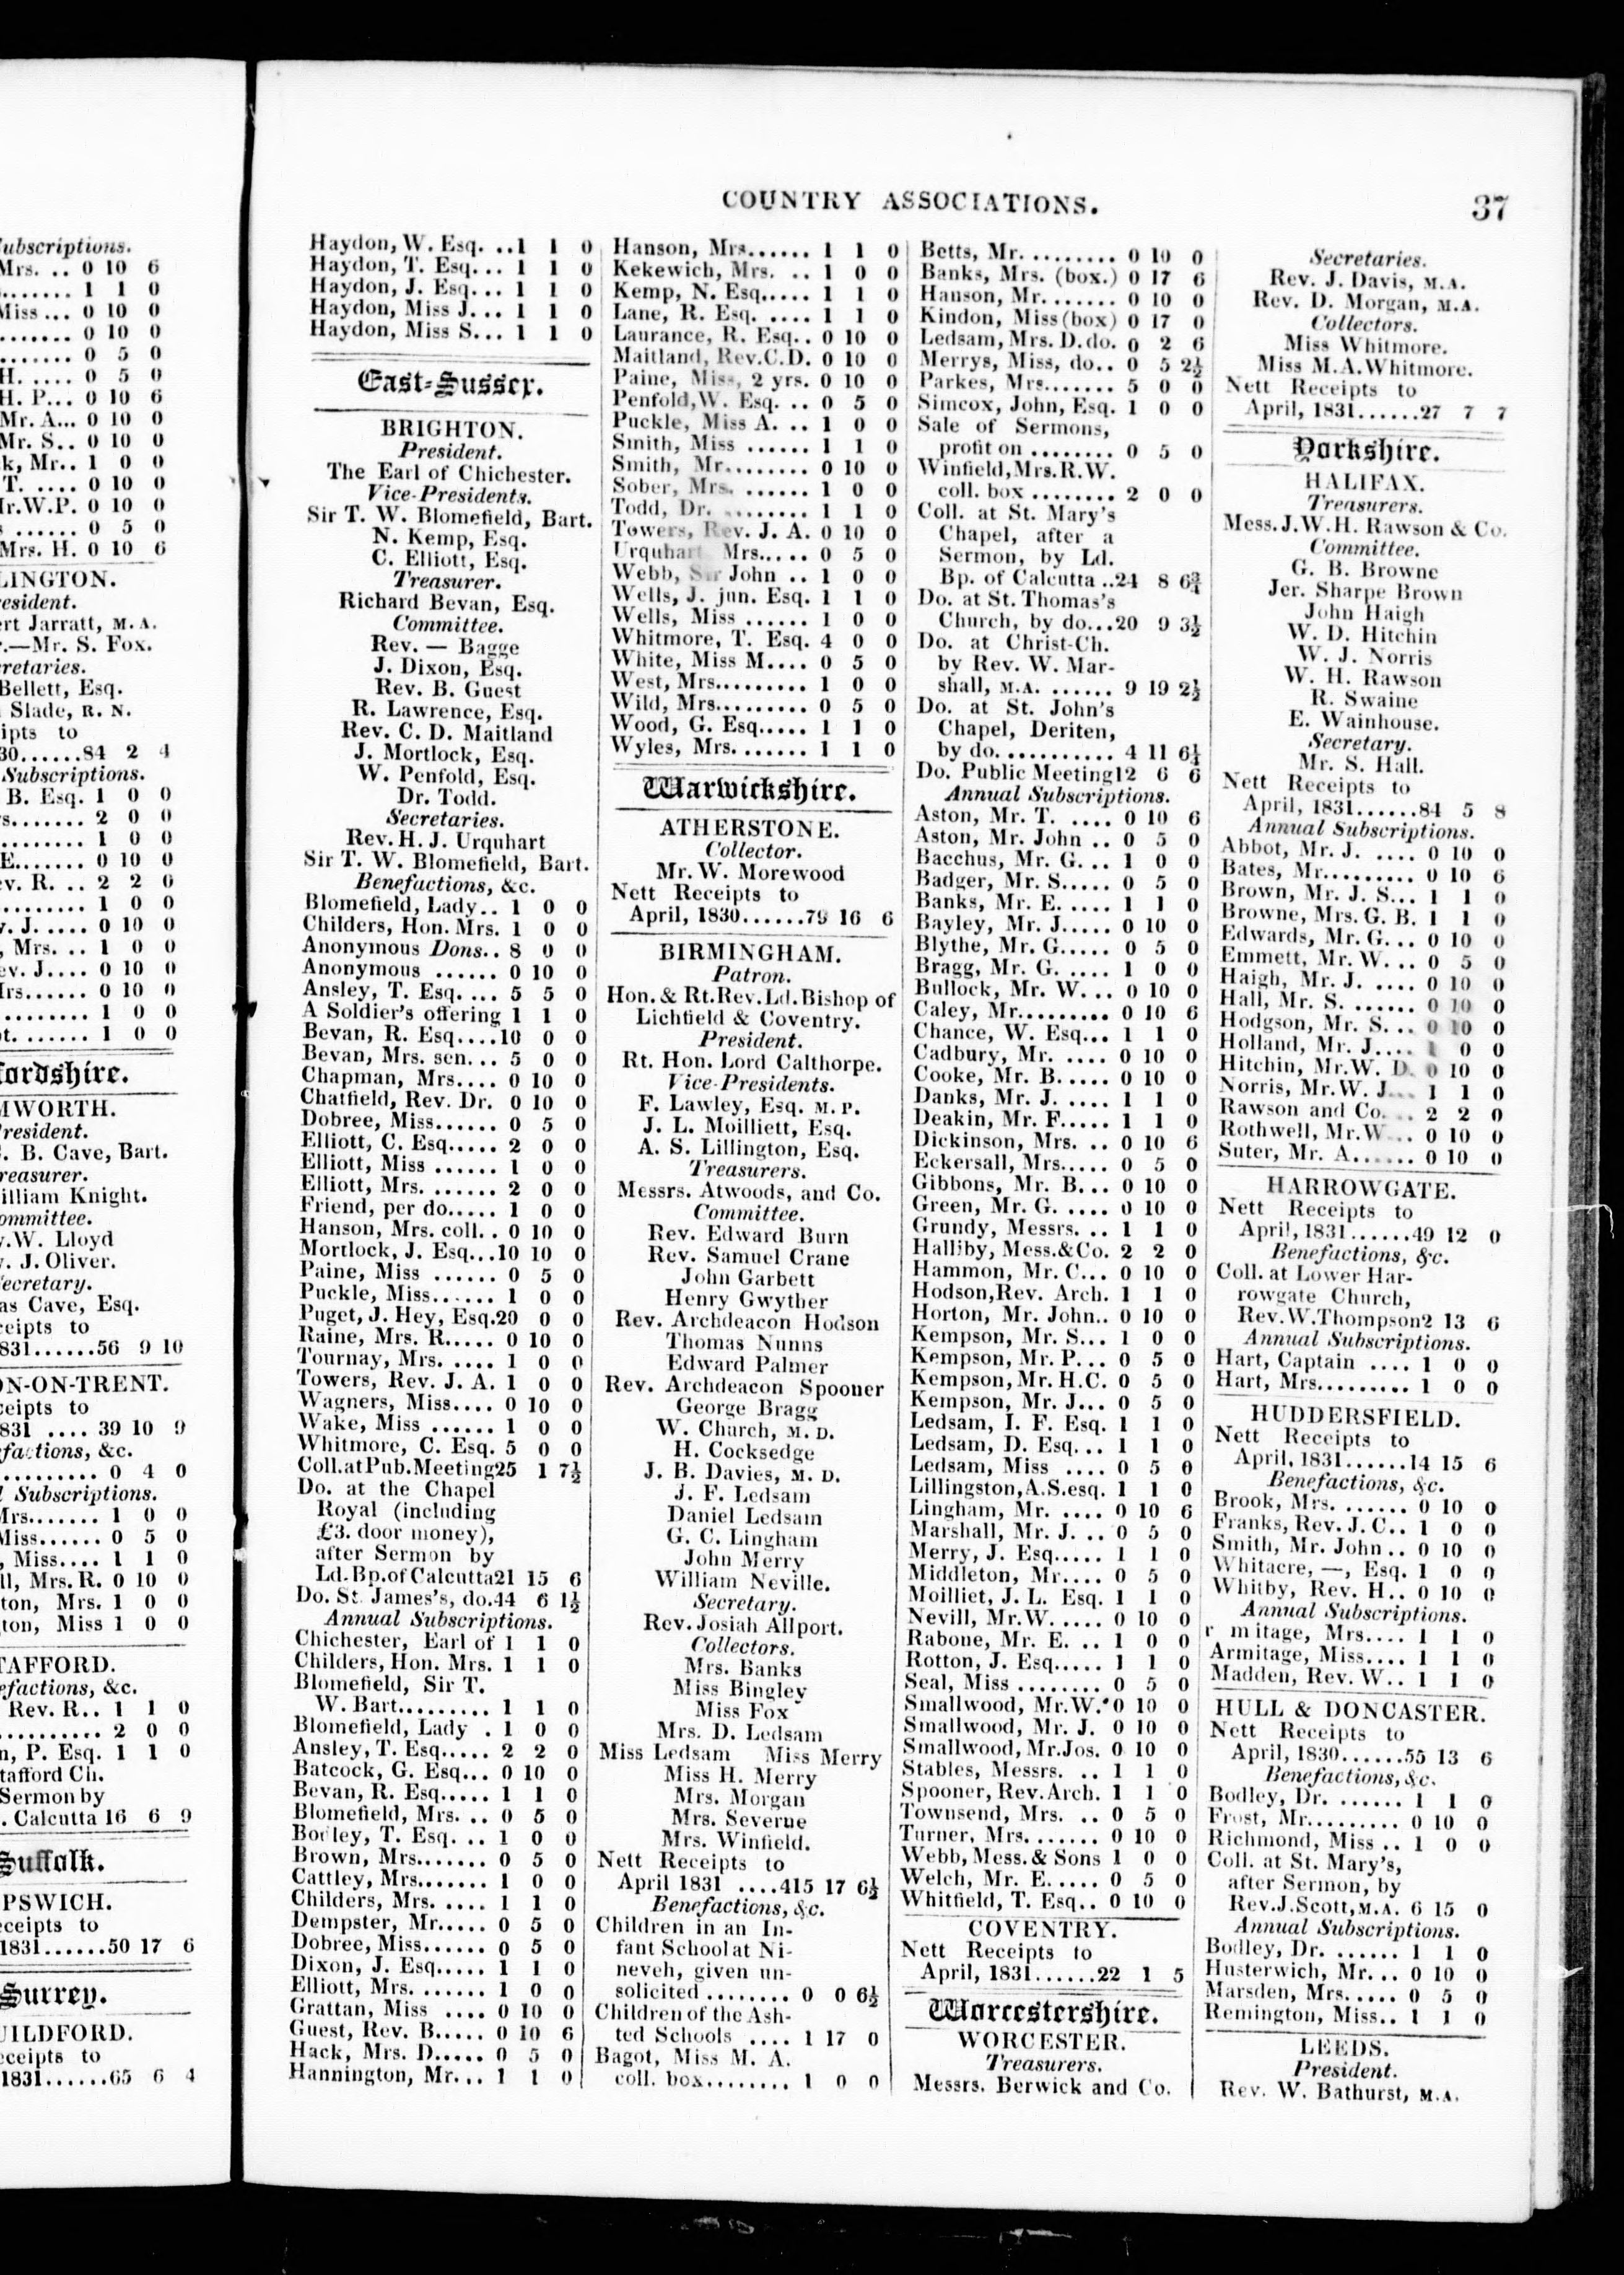 COUNTRY ASSOCIATIONS.
37
ubscriptions.
Mrs. .. 0 10 6
s....... 1 1 0
Miss ... 0 10 0
........ 0 10 0
........ 0 5 0
H. ..... 0 5 0
H. P... 0 10 6
Mr. A... 0 10 0
Mr. S.. 0 10 0
k, Mr.. 1 0 0
T. .... 0 10 0
Ir.W.P. 0 10 0
s ...... 0 5 0
Mrs. H. 0 10 6
LINGTON.
esident.
ert Jarratt, M. A.
r.—Mr. S. Fox.
retaries.
Bellett, Esq.
Slade, R. N.
ipts to
30......84 2 4
Subscriptions.
B. Esq. 1 0 0
s....... 2 0 0
......... 1 0 0
E....... 0 10 0
v. R. .. 2 2 0
......... 1 0 0
v. J. .... 0 10 0
, Mrs. .. 1 0 0
ev. J.... 0 10 0
Irs...... 0 10 0
......... 1 0 0
ot. ....... 1 0 0
fordshire.
MWORTH.
resident.
. B. Cave, Bart.
reasurer.
illiam Knight.
ommittee.
v.W. Lloyd
v. J. Oliver.
ecretary.
as Cave, Esq.
ceipts to
831......56 9 10
ON-ON-TRENT.
ceipts to
831 .... 39 10 9
efactions, &c.
.......... 0 4 0
l Subscriptions.
Mrs....... 1 0 0
Miss...... 0 5 0
, Miss.... 1 1 0
ll, Mrs. R. 0 10 0
ton, Mrs. 1 0 0
ton, Miss 1 0 0
TAFFORD.
efactions, &c.
Rev. R.. 1 1 0
.......... 2 0 0
n, P. Esq. 1 1 0
tafford Ch.
Sermon by
. Calcutta 16 6 9
Suffolk.
PSWICH.
eceipts to
1831......50 17 6
Surrey.
UILDFORD.
eceipts to
1831......65 6 4
Haydon, W. Esq. ..1 1 0
Haydon, T. Esq... 1 1 0
Haydon, J. Esq... 1 1 0
Haydon, Miss J... 1 1 0
Haydon, Miss S... 1 1 0
East-Sussex.
BRIGHTON.
President.
The Earl of Chichester.
Vice-Presidents.
Sir T. W. Blomefield, Bart.
N. Kemp, Esq.
C. Elliott, Esq.
Treasurer.
Richard Bevan, Esq.
Committee.
Rev. — Bagge
J. Dixon, Esq.
Rev. B. Guest
R. Lawrence, Esq.
Rev. C. D. Maitland
J. Mortlock, Esq.
W. Penfold, Esq.
Dr. Todd.
Secretaries.
Rev. H. J. Urquhart
Sir T. W. Blomefield, Bart.
Benefactions, &c.
Blomefield, Lady.. 1 0 0
Childers, Hon. Mrs. 1 0 0
Anonymous Dons.. 8 0 0
Anonymous ...... 0 10 0
Ansley, T. Esq. ... 5 5 0
A Soldier's offering 1 1 0
Bevan, R. Esq....10 0 0
Bevan, Mrs. sen... 5 0 0
Chapman, Mrs.... 0 10 0
Chatfield, Rev. Dr. 0 10 0
Dobree, Miss...... 0 5 0
Elliott, C. Esq..... 2 0 0
Elliott, Miss ...... 1 0 0
Elliott, Mrs. ....... 2 0 0
Friend, per do..... 1 0 0
Hanson, Mrs. coll. . 0 10 0
Mortlock, J. Esq...10 10 0
Paine, Miss ...... 0 5 0
Puckle, Miss...... 1 0 0
Puget, J. Hey, Esq.20 0 0
Raine, Mrs. R..... 0 10 0
Tournay, Mrs. .... 1 0 0
Towers, Rev. J. A. 1 0 0
Wagners, Miss.... 0 10 0
Wake, Miss ...... 1 0 0
Whitmore, C. Esq. 5 0 0
Coll.atPub.Meeting25 1 7½
Do. at the Chapel
Royal (including
£3. door money),
after Sermon by
Ld.Bp.ofCalcutta21 15 6
Do. St. James's, do.44 6 1½
Annual Subscriptions.
Chichester, Earl of 1 1 0
Childers, Hon. Mrs. 1 1 0
Blomefield, Sir T.
W. Bart......... 1 1 0
Blomefield, Lady . 1 0 0
Ansley, T. Esq..... 2 2 0
Batcock, G. Esq... 0 10 0
Bevan, R. Esq..... 1 1 0
Blomefield, Mrs. .. 0 5 0
Borley, T. Esq. .. 1 0 0
Brown, Mrs....... 0 5 0
Cattley, Mrs....... 1 0 0
Childers, Mrs. .... 1 1 0
Dempster, Mr..... 0 5 0
Dobree, Miss...... 0 5 0
Dixon, J. Esq..... 1 1 0
Elliott, Mrs. ....... 1 0 0
Grattan, Miss .... 0 10 0
Guest, Rev. B..... 0 10 6
Hack, Mrs. D..... 0 5 0
Hannington, Mr... 1 1 0
Hanson, Mrs...... 1 1 0
Kekewich, Mrs. .. 1 0 0
Kemp, N. Esq..... 1 1 0
Lane, R. Esq. .... 1 1 0
Laurance, R. Esq.. 0 10 0
Maitland, Rev.C.D. 0 10 0
Paine, Miss, 2 yrs. 0 10 0
Penfold, W. Esq. .. 0 5 0
Puckle, Miss A. .. 1 0 0
Smith, Miss ...... 1 1 0
Smith, Mr........ 0 10 0
Sober, Mrs. ...... 1 0 0
Todd, Dr. ........ 1 1 0
Towers, Rev. J. A. 0 10 0
Urquhart Mrs..... 0 5 0
Webb, Sir John .. 1 0 0
Wells, J. jun. Esq. 1 1 0
Wells, Miss ...... 1 0 0
Whitmore, T. Esq. 4 0 0
White, Miss M.... 0 5 0
West, Mrs......... 1 0 0
Wild, Mrs......... 0 5 0
Wood, G. Esq..... 1 1 0
Wyles, Mrs. ....... 1 1 0
Warwickshire.
ATHERSTONE.
Collector.
Mr. W. Morewood
Nett Receipts to
April, 1830......79 16 6
BIRMINGHAM.
Patron.
Hon. & Rt. Rev. Ld. Bishop of
Lichfield & Coventry.
President.
Rt. Hon. Lord Calthorpe.
Vice-Presidents.
F. Lawley, Esq. M. P.
J. L. Moilliett, Esq.
A. S. Lillington, Esq.
Treasurers.
Messrs. Atwoods, and Co.
Committee.
Rev. Edward Burn
Rev. Samuel Crane
John Garbett
Henry Gwyther
Rev. Archdeacon Hodson
Thomas Nunns
Edward Palmer
Rev. Archdeacon Spooner
George Bragg
W. Church, M. D.
H. Cocksedge
J. B. Davies, M. D.
J. F. Ledsam
Daniel Ledsam
G. C. Lingham
John Merry
William Neville.
Secretary.
Rev. Josiah Allport.
Collectors.
Mrs. Banks
Miss Bingley
Miss Fox
Mrs. D. Ledsam
Miss Ledsam Miss Merry
Miss H. Merry
Mrs. Morgan
Mrs. Severne
Mrs. Winfield.
Nett Receipts to
April 1831 ....415 17 6½
Benefactions, &c.
Children in an In-
fant School at Ni-
neveh, given un-
solicited ........ 0 0 6½
Children of the Ash-
ted Schools .... 1 17 0
Bagot, Miss M. A.
coll. box........ 1 0 0
Betts, Mr. ........ 0 10 0
Banks, Mrs. (box.) 0 17 6
Hanson, Mr....... 0 10 0
Kindon, Miss (box) 0 17 0
Ledsam, Mrs. D. do. 0 2 6
Merrys, Miss, do.. 0 5 2½
Parkes, Mrs....... 5 0 0
Simcox, John, Esq. 1 0 0
Sale of Sermons,
profit on ........ 0 5 0
Winfield, Mrs. R.W.
coll. box ........ 2 0 0
Coll. at St. Mary's
Chapel, after a
Sermon, by Ld.
Bp. of Calcutta ..24 8 6¾
Do. at St. Thomas's
Church, by do...20 9 3½
Do. at Christ-Ch.
by Rev. W. Mar-
shall, M.A. ...... 9 19 2½
Do. at St. John's
Chapel, Deriten,
by do........... 4 11 6½
Do. Public Meeting12 6 6
Annual Subscriptions.
Aston, Mr. T. .... 0 10 6
Aston, Mr. John .. 0 5 0
Bacchus, Mr. G... 1 0 0
Badger, Mr. S..... 0 5 0
Banks, Mr. E. .... 1 1 0
Bayley, Mr. J..... 0 10 0
Blythe, Mr. G..... 0 5 0
Bragg, Mr. G. .... 1 0 0
Bullock, Mr. W... 0 10 0
Caley, Mr......... 0 10 6
Chance, W. Esq... 1 1 0
Cadbury, Mr. .... 0 10 0
Cooke, Mr. B..... 0 10 0
Danks, Mr. J. .... 1 1 0
Deakin, Mr. F..... 1 1 0
Dickinson, Mrs. .. 0 10 6
Eckersall, Mrs..... 0 5 0
Gibbons, Mr. B... 0 10 0
Green, Mr. G. .... 0 10 0
Grundy, Messrs. .. 1 1 0
Halliby, Mess.&Co. 2 2 0
Hammon, Mr. C... 0 10 0
Hodson, Rev. Arch. 1 1 0
Horton, Mr. John.. 0 10 0
Kempson, Mr. S... 1 0 0
Kempson, Mr. P... 0 5 0
Kempson, Mr. H.C. 0 5 0
Kempson, Mr. J... 0 5 0
Ledsam, I. F. Esq. 1 1 0
Ledsam, D. Esq... 1 1 0
Ledsam, Miss .... 0 5 0
Lillingston,A.S.esq. 1 1 0
Lingham, Mr. .... 0 10 6
Marshall, Mr. J. .. 0 5 0
Merry, J. Esq..... 1 1 0
Middleton, Mr.... 0 5 0
Moilliet, J. L. Esq. 1 1 0
Nevill, Mr.W. .... 0 10 0
Rabone, Mr. E. .. 1 0 0
Rotton, J. Esq..... 1 1 0
Seal, Miss ........ 0 5 0
Smallwood, Mr.W. 0 10 0
Smallwood, Mr. J. 0 10 0
Smallwood, Mr.Jos. 0 10 0
Stables, Messrs. .. 1 1 0
Spooner, Rev. Arch. 1 1 0
Townsend, Mrs. .. 0 5 0
Turner, Mrs....... 0 10 0
Webb, Mess. & Sons 1 0 0
Welch, Mr. E..... 0 5 0
Whitfield, T. Esq.. 0 10 0
COVENTRY.
Nett Receipts to
April, 1831......22 1 5
Worcestershire.
WORCESTER.
Treasurers.
Messrs. Berwick and Co.
Secretaries.
Rev. J. Davis, M.A.
Rev. D. Morgan, M.A.
Collectors.
Miss Whitmore.
Miss M.A. Whitmore.
Nett Receipts to
April, 1831......27 7 7
Yorkshire.
HALIFAX.
Treasurers.
Mess. J.W.H. Rawson & Co.
Committee.
G. B. Browne
Jer. Sharpe Brown
John Haigh
W. D. Hitchin
W. J. Norris
W. H. Rawson
R. Swaine
E. Wainhouse.
Secretary.
Mr. S. Hall.
Nett Receipts to
April, 1831......84 5 8
Annual Subscriptions.
Abbot, Mr. J. .... 0 10 0
Bates, Mr......... 0 10 6
Brown, Mr. J. S... 1 1 0
Browne, Mrs. G. B. 1 1 0
Edwards, Mr. G... 0 10 0
Emmett, Mr. W... 0 5 0
Haigh, Mr. J. .... 0 10 0
Hall, Mr. S. ...... 0 10 0
Hodgson, Mr. S... 0 10 0
Holland, Mr. J.... 1 0 0
Hitchin, Mr.W. D. 0 10 0
Norris, Mr.W. J... 1 1 0
Rawson and Co. .. 2 2 0
Rothwell, Mr.W... 0 10 0
Suter, Mr. A...... 0 10 0
HARROWGATE.
Nett Receipts to
April, 1831......49 12 0
Benefactions, &c.
Coll. at Lower Har-
rowgate Church,
Rev.W.Thompson2 13 6
Annual Subscriptions.
Hart, Captain .... 1 0 0
Hart, Mrs......... 1 0 0
HUDDERSFIELD.
Nett Receipts to
April, 1831......14 15 6
Benefactions, &c.
Brook, Mrs. ....... 0 10 0
Franks, Rev. J. C.. 1 0 0
Smith, Mr. John .. 0 10 0
Whitacre, —, Esq. 1 0 0
Whitby, Rev. H.. 0 10 0
Annual Subscriptions.
r mitage, Mrs.... 1 1 0
Armitage, Miss.... 1 1 0
Madden, Rev. W.. 1 1 0
HULL & DONCASTER.
Nett Receipts to
April, 1830......55 13 6
Benefactions, &c.
Bodley, Dr. ...... 1 1 0
Frost, Mr......... 0 10 0
Richmond, Miss .. 1 0 0
Coll. at St. Mary's,
after Sermon, by
Rev.J.Scott,M.A. 6 15 0
Annual Subscriptions.
Bodley, Dr. ...... 1 1 0
Husterwich, Mr... 0 10 0
Marsden, Mrs..... 0 5 0
Remington, Miss.. 1 1 0
LEEDS.
President.
Rev. W. Bathurst, M.A.